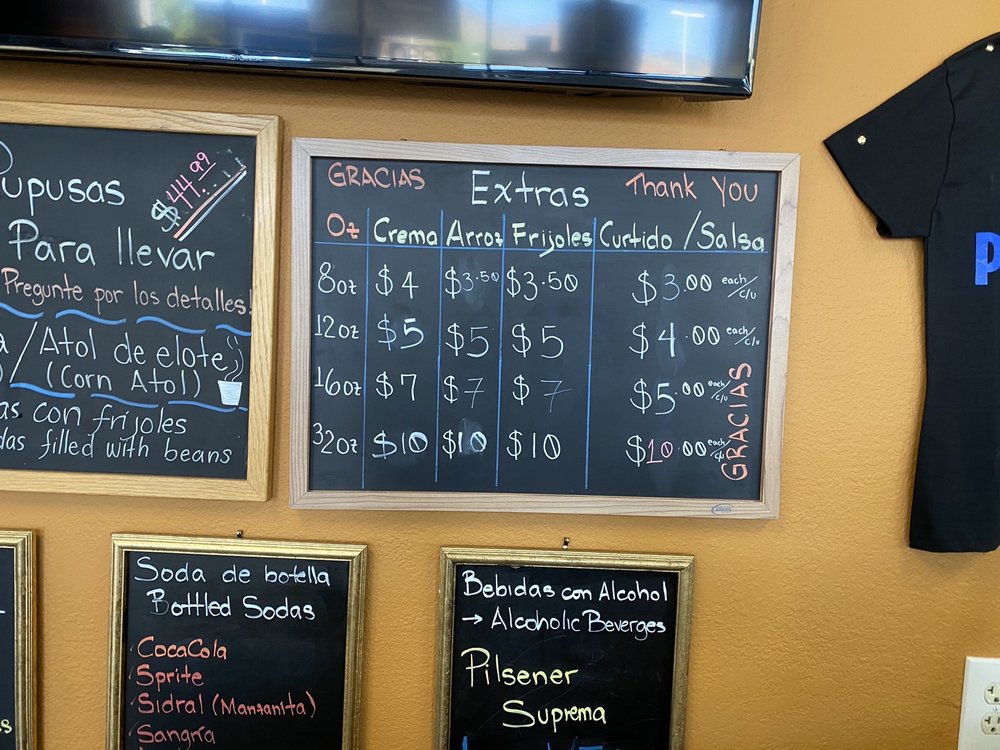 INSIGNIA
Pupusas
$44.99
Para llevar
Pregunte por los detalles!
/Atol de elote
(Corn Atol)
con frijoles
filled with beans
GRACIAS Extras Thank You
Oz Crema Arroz Frijoles Curtido /Salsa
8oz $4 $3.50 $3.50 $3.00 each/c/u
12oz $5 $5 $5 $4.00 each/c/u
16oz $7 $7 $7 $5.00 each/c/u
32oz $10 $10 $10 $10.00 each/c/u
GRACIAS
Soda de botella
Bottled Sodas
CocaCola
Sprite
Sidral (Manzanita)
Sangría
Bebidas con Alcohol
→ Alcoholic Beverges
Pilsener
Suprema
P